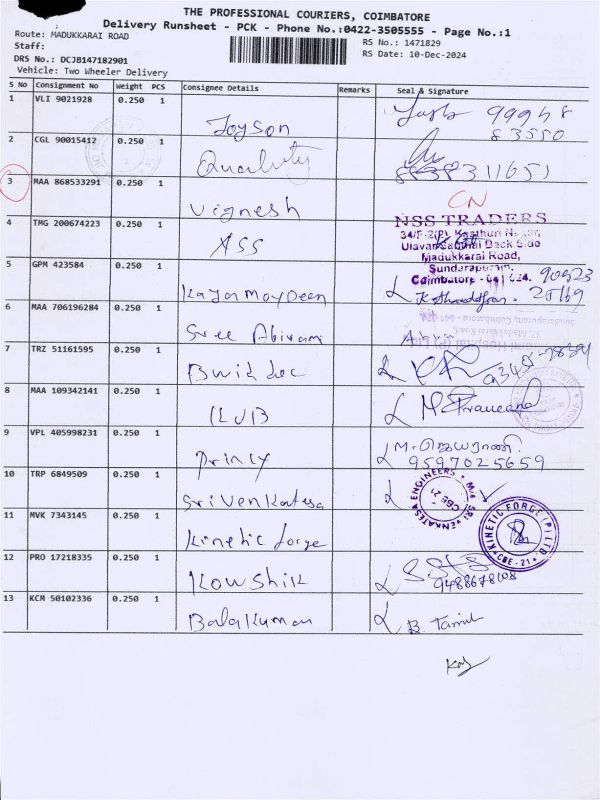 THE PROFESSIONAL COURIERS, COIMBATORE
Delivery Runsheet - PCK - Phone No.:0422-3505555 - Page No.:1
Route: MADUKKARAI ROAD
RS No.: 1471829
Staff:
RS Date: 10-Dec-2024
DRS No.: DCJB147182901
Vehicle: Two Wheeler Delivery
S No Consignment No Weight PCS Consignee Details Remarks Seal & Signature
1 VLI 9021928 0.250 1 Joyson
83550
2 CGL 90015412 0.250 1 Quality
8838311651
3 MAA 868533291 0.250 1 Vignesh CN
4 TMG 200674223 0.250 1 ASS
NSS TRADERS
Madukkarai Road,
Sundarapuram,
5 GPM 423584 0.250 1 Kajamoydeen
6 MAA 706196284 0.250 1 Sree Abirami
7 TRZ 51161595 0.250 1
8 MAA 109342141 0.250 1 KVB
9 VPL 405998231 0.250 1 princy M. ஜெயராணி.
9597025659
10 TRP 6849509 0.250 1 Sri Venkatesa
SRI VENKATESA ENGINEERS CBE-21
11 MVK 7343145 0.250 1 Kinetic forge
KINETIC FORGE (P) LTD CBE-21
12 PRO 17218335 0.250 1 Kowshik
13 KCM 50102336 0.250 1 Balakumar B. Tamil